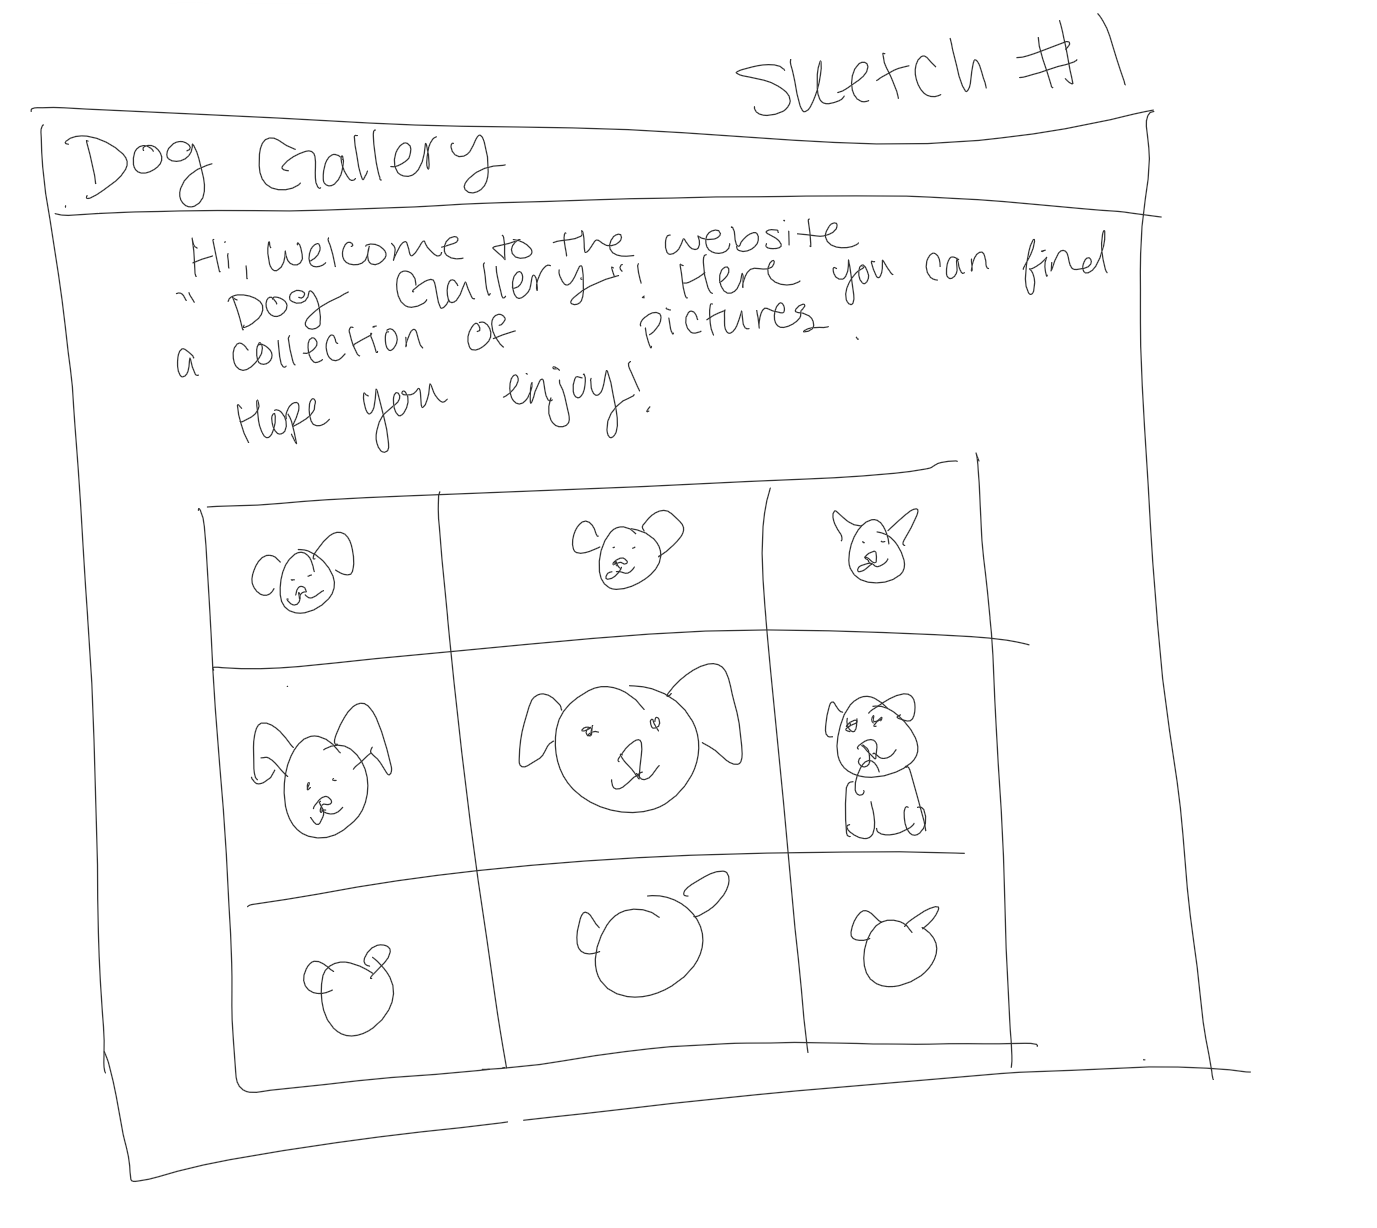 Sketch #1
Dog Gallery
Hi, welcome to the website
"Dog Gallery"! Here you can find
a collection of pictures.
Hope you enjoy!